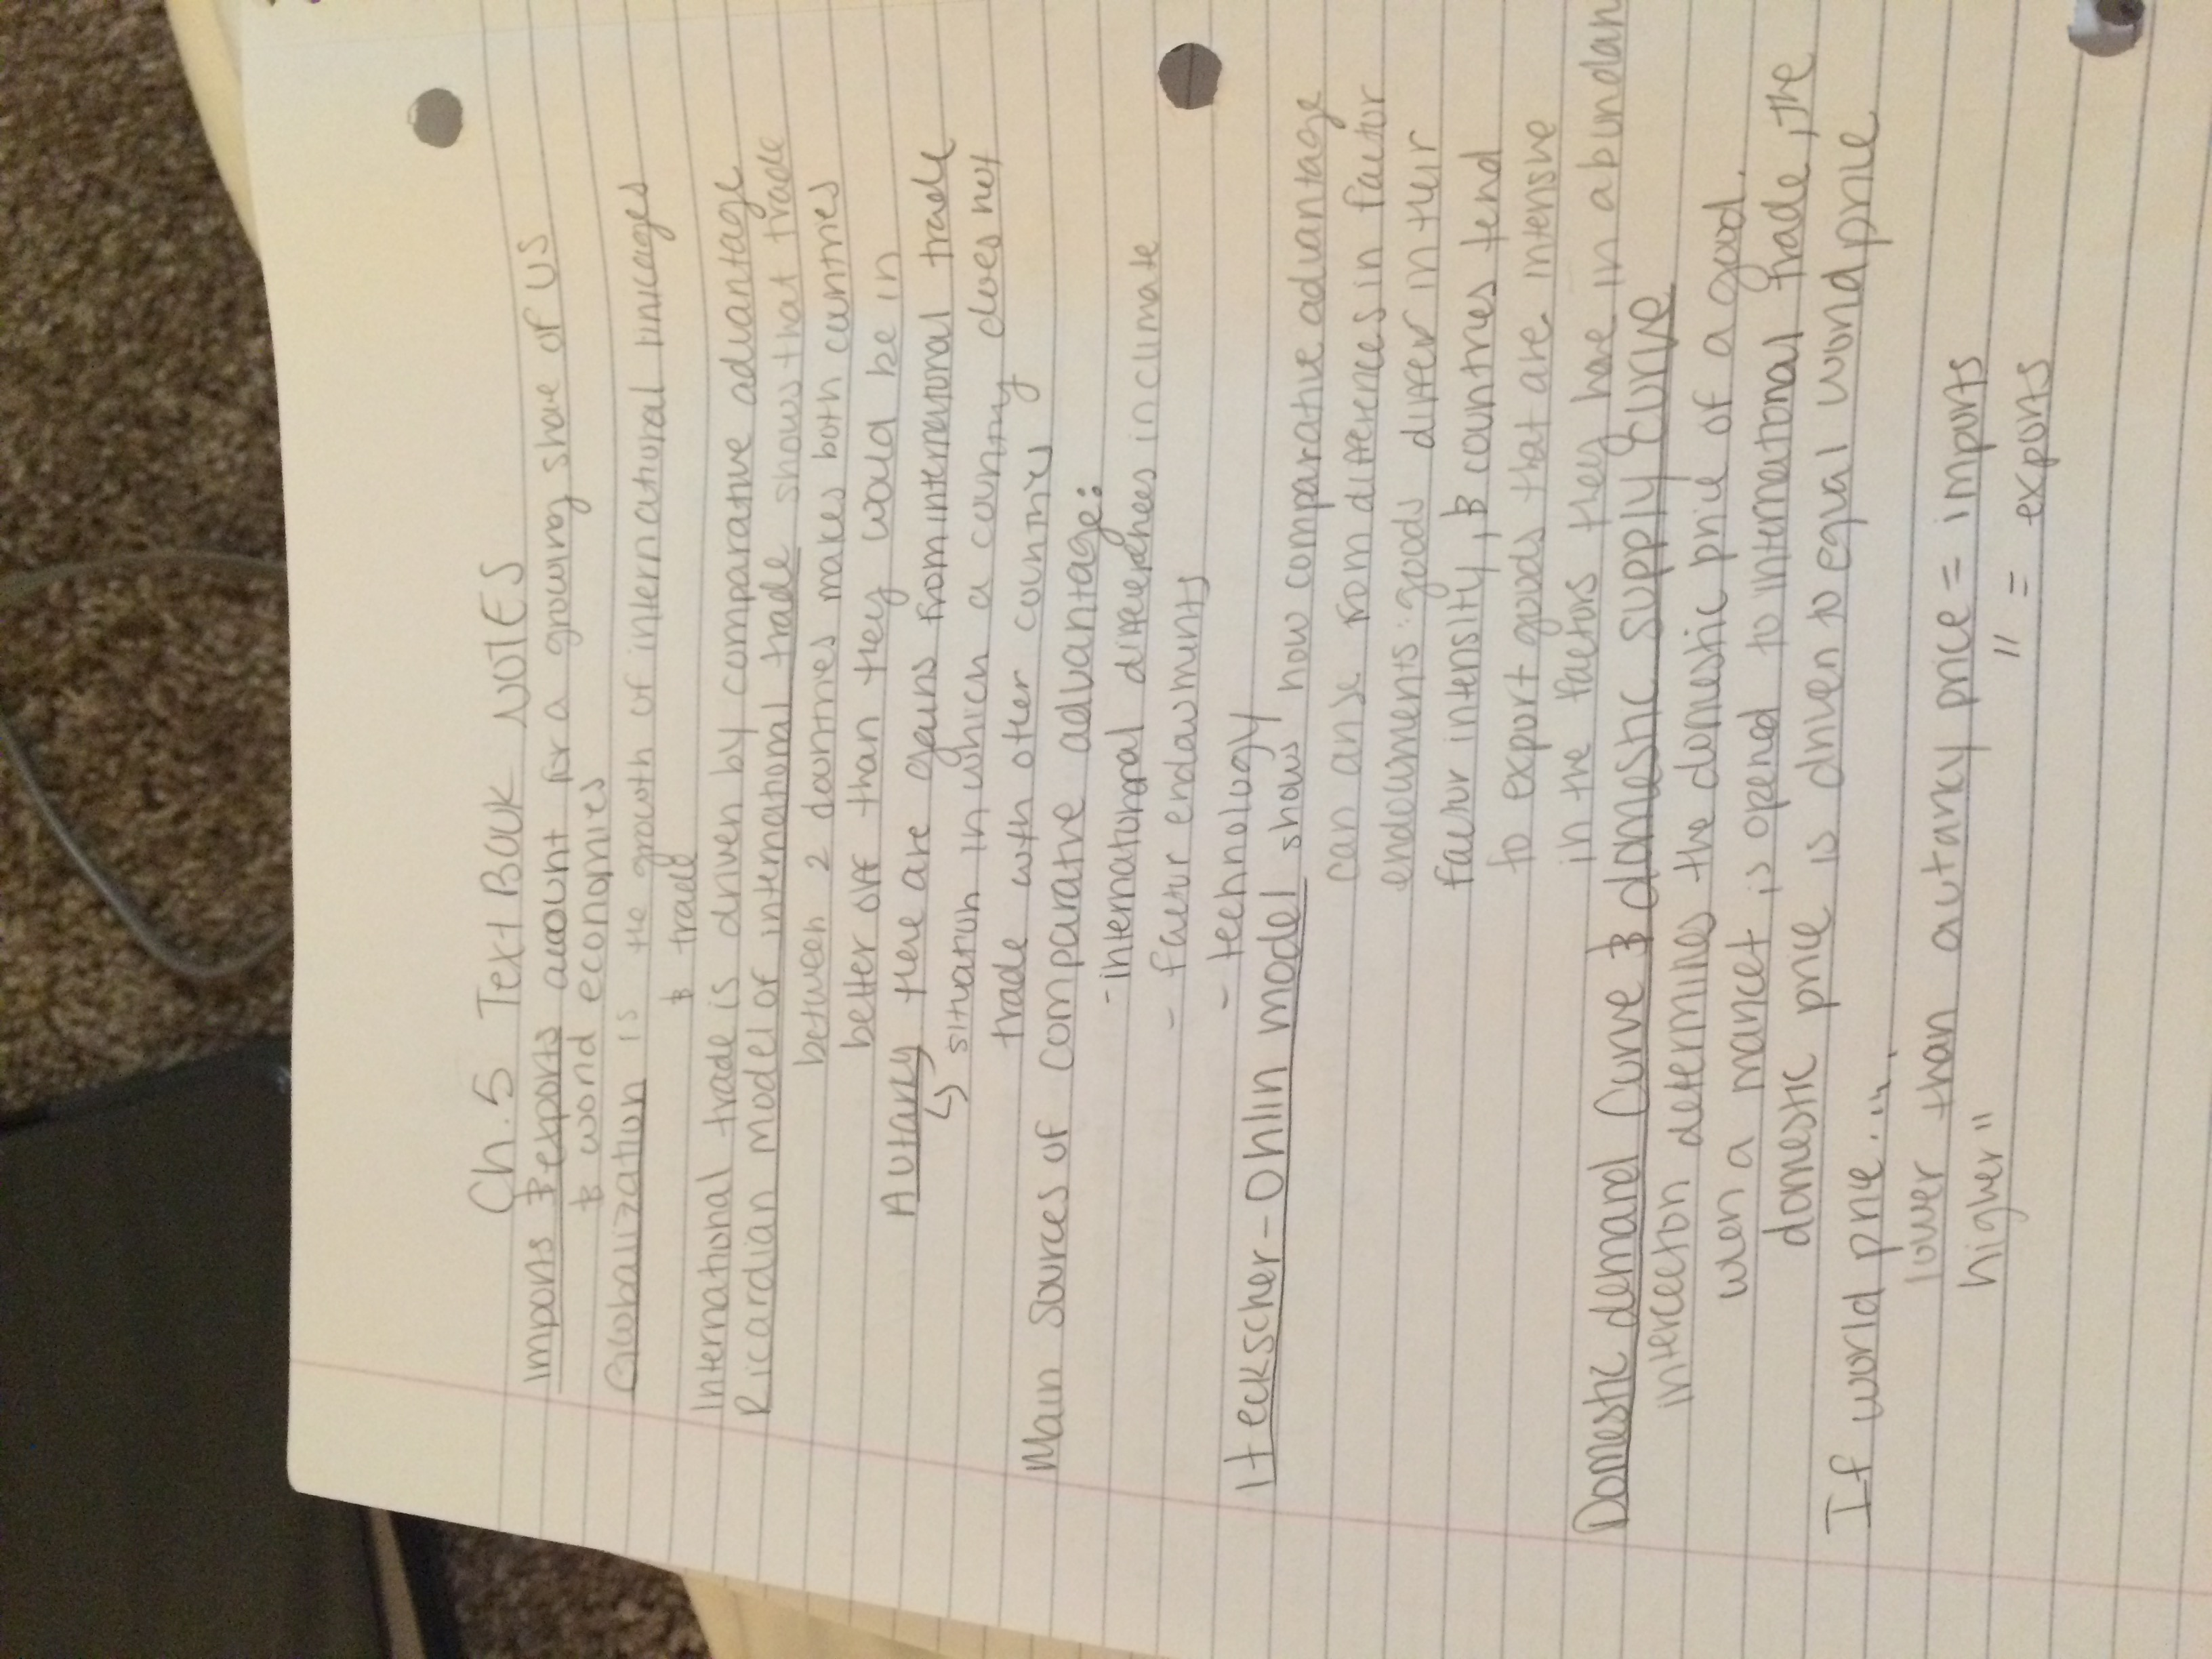 Ch. 5 Text Book NOTES
Imports & exports account for a growing share of US
& world economies
Globalization is the growth of international linkages
& trade
International trade is driven by comparative advantage
Ricardian model of international trade shows that trade
between 2 countries makes both countries
better off than they would be in
Autarky there are gains from international trade
↳ situation in which a country does not
trade with other countries
Main Sources of comparative advantage:
- international differences in climate
- factor endowments
- technology
Heckscher-Ohlin model shows how comparative advantage
can arise from differences in factor
endowments: goods differ in their
factor intensity, & countries tend
to export goods that are intensive
in the factors they have in abundan
Domestic demand curve & domestic supply curve
intercection determines the domestic price of a good.
when a market is opend to international trade, the
domestic price is driven to equal world price
If world price....
lower than autarky price = imports
higher " " = exports